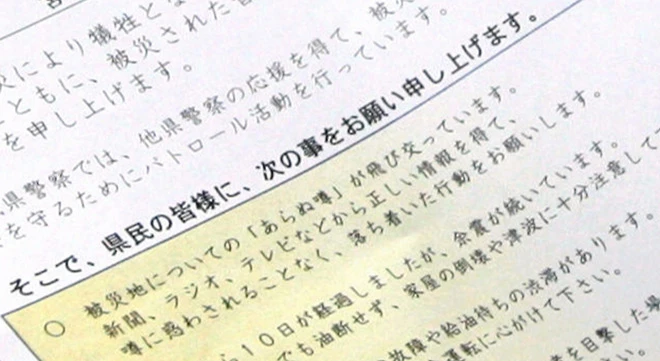 災により犠牲とな
ともに、被災された皆
を申し上げます。
県警察では、他県警察の応援を得て、被災
を守るためにパトロール活動を行っています。
そこで、県民の皆様に、次の事をお願い申し上げます。
○ 被災地についての「あらぬ噂」が飛び交っています。
新聞、ラジオ、テレビなどから正しい情報を得て、
噂に惑わされることなく、落ち着いた行動をお願いします。
ら10日が経過しましたが、余震が続いています。
でも油断せず、家屋の倒壊や津波に十分注意して
故障や給油待ちの渋滞があります。
運転に心がけて下さい。
を目撃した場